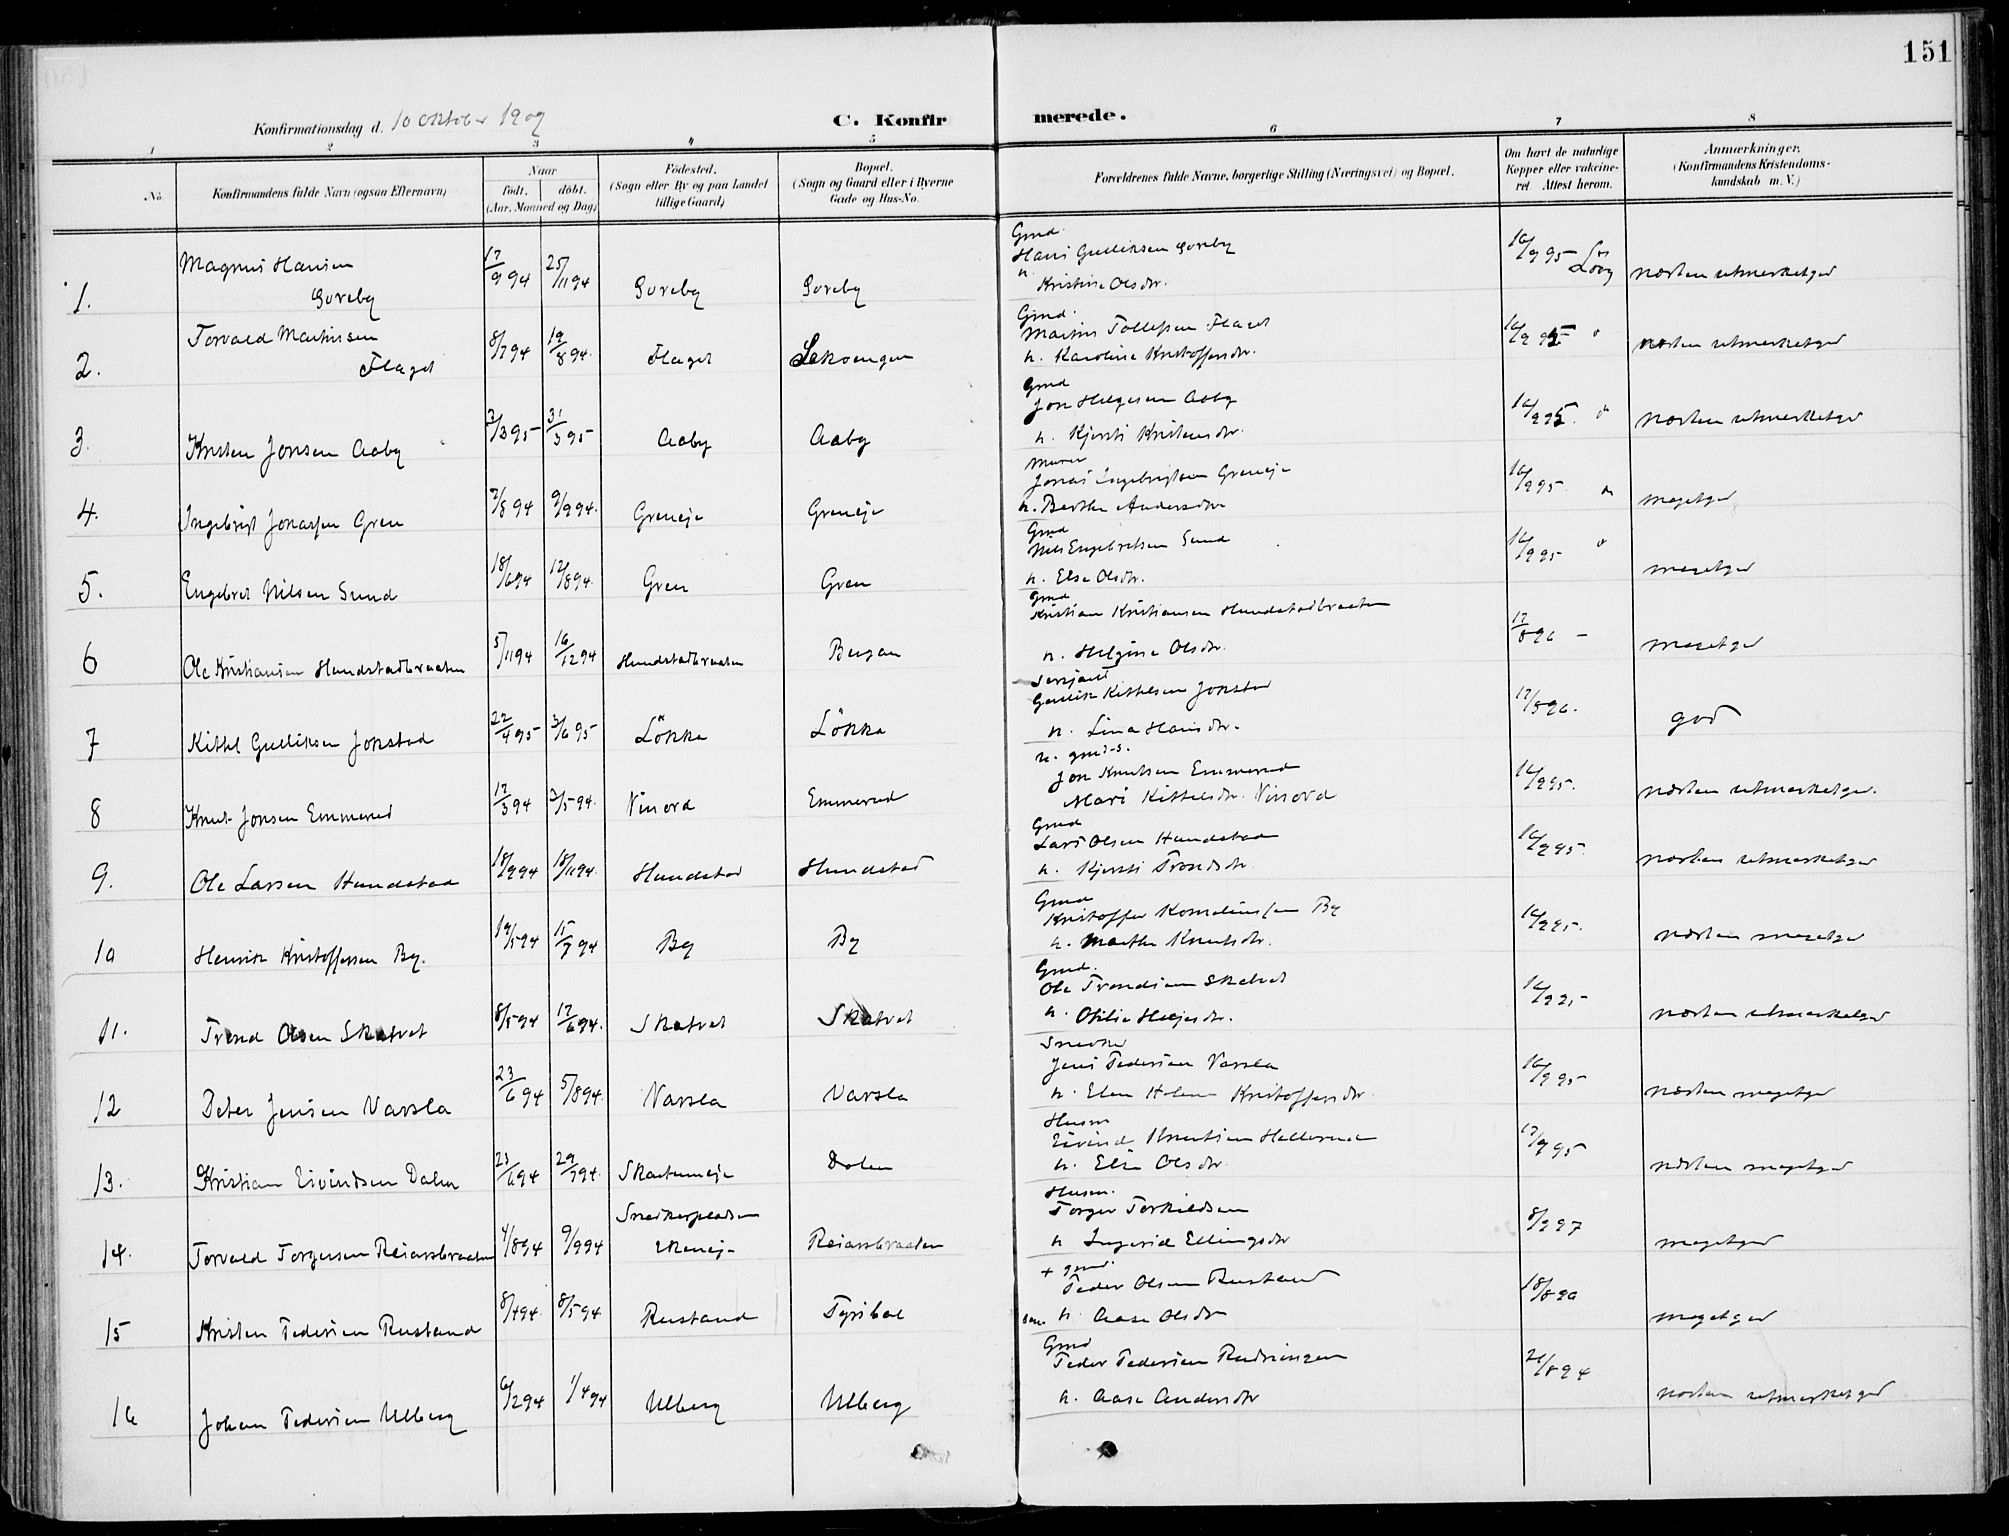 151
Konfirmationsdag d. 10 Oktober 1909
C. Konfirmerede.
1 2 3 4 5 6 7 8
No.
Konfirmandens fulde Navn (ogsaa Efternavn)
Naar
født. døbt.
(Aar, Maaned og Dag)
Fødested.
(Sogn eller By og paa Landet
tillige Gaard)
Bopæl.
(Sogn og Gaard eller i Byerne
Gade og Hus-No.
Forældrenes fulde Navne, borgerlige Stilling (Næringsvei) og Bopæl.
Om havt de naturlige
Kopper eller vakcine-
ret Attest herom.
Anmærkninger.
(Konfirmandens Kristendoms-
kundskab m. V.)
Gmd.
1. Magnus Hansen Goreby 17/9 94 25/11 94 Goreby Goreby Hans Gulliksen Goreby
h. Kristine Olsdtr. 16/9 95 næsten utmerketgod
Gmd.
2. Torvald Martinsen Flaget 8/7 94 19/8 94. Flaget Martin Tollefsen Flaget
h. Karoline Kristoffersdtr. næsten utmerketgod
Gmd
3. Kristen Jonsen Aaby 3/3 95 31/3 95 Aaby Aaby Jon Helgesen Aaby
h. Kjersti Kristensdtr. næsten utmerketgod
Murer
4. Ingebrigt Jonassen Gren 7/8 94 9/9 94. Greneje Greneje Jonas Ingebrigtsen Greneje
h. Berthe Andersdtr 16/9 95. megetgod
Gmd
5. Engebret Nilsen Sund 18/6 94 12/8 94. Gren Gren Nils Engebretsen Sund
h. Else Olsdtr. 16/9 95 megetgod
Gmd
6 Ole Kristiansen Hundstadbraaten 5/11 94 16/12 94 Hundstadbraaten Kristian Kristiansen Hundstadbraaten
h. Helgine Olsdtr. 17/8 96 - megetgod
Serjant
7 Kittel Gulliksen Jonstad 22/4 95 3/6 95 Løkka Løkka Gullik Kittelsen Jonstad
h. Lina Hansdtr. 17/8 96. god
8 Knut Jonsen Emmerud 17/3 94 3/5 94. Vinord Emmerud Jon Knutsen Emmerud
Mari Kittelsdtr. Vinord 16/9 95. næsten utmerketgod.
Gmd
9. Ole Larsen Hundstad 18/9 94 18/11 94. Hundstad Hundstad Lars Olsen Hundstad
h. Kjersti Trondsdtr. 16/9 95. næsten utmerketgod
Gmd
10 Henrik Kristoffersen By. 19/5 94 15/7 94 By By Kristoffer Korneliussen By
h. Marthe Knutsdtr. 16/9 95. næsten megetgod
Gmd.
11. Trond Olsen Skatvet 8/5 94 17/6 94. Skatvet Skatvet Ole Trondsen Skatvet
h. Otilie Helgesdtr. næsten utmerketgod
Snedker
12 Peter Jensen Varsla 23/6 94 5/8 94. Varsla Varsla Jens Pedersen Varsla
h. Elen Helene Kristoffersdtr. 16/9 95 næsten megetgod
Husm
13. Kristian Eivindsen Dalen 23/6 94 29/7 94. Dalen Eivind Knutsen Hellerud
h. Elise Olsdtr. 17/9 95 næsten megetgod
Husm.
14. Torvald Torgersen Reiarsbraaten 4/8 94 9/9 94 Snedkerpladsen Reiarsbraaten Torger Torkildsen
h Ingerid Ellingsdtr 8/9 97 megetgod
+ gmd.
15 Kristen Pedersen Rustand 8/4 94. 8/5 94 Rustand Peder Olsen Rustand
h. Aase Olsdtr megetgod
Gmd
16 Johan Pedersen Ulberg 6/2 94 1/4 94 Ulberg Ulberg Peder Pedersen Rudningen
h. Aase Andersdtr næsten utmerketgod